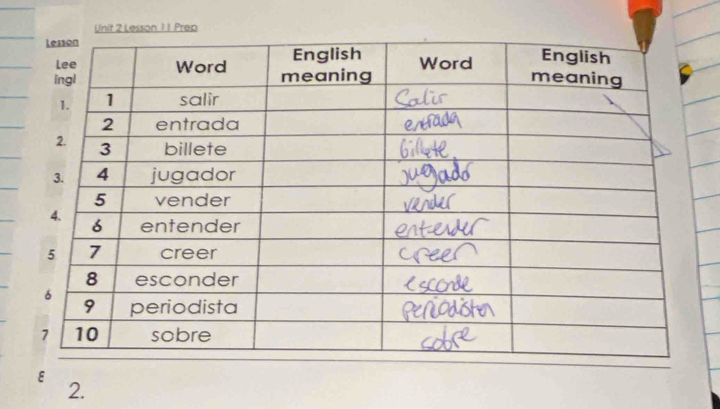 Unit 2 Lesson 11 Prep
Lesson
Lee
Ingl
Word English meaning Word English meaning
1. 1 salir Salir
2 entrada entrada
2. 3 billete billete
3. 4 jugador jugador
5 vender vender
4. 6 entender entender
5 7 creer creer
8 esconder esconde
6 9 periodista periodista
7 10 sobre sobre
8
2.